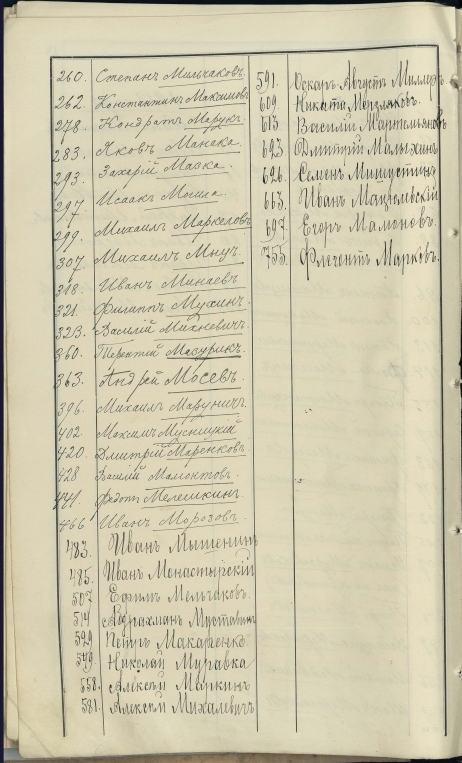 260. Степанъ Мильчаковъ.
262. Константинъ Максимовъ
278. Кондратъ Марукъ.
283. Яковъ Манака.
293. Захарій Мазка.
297. Исаакъ Могила.
299. Михаилъ Маркеловъ
307. Михаилъ Мнуч.
318. Иванъ Минаевъ
321. Филиппъ Мухинъ.
323. Василій Михневичъ.
360. Терентій Мазурикъ.
363. Андрей Мосевъ.
396. Михаилъ Маруничъ.
402. Максимъ Мусницкій
420. Дмитрій Маренковъ.
428 Василій Мамонтовъ.
441. Федотъ Мелешкинъ.
466 Иванъ Морозовъ.
483. Иванъ Мышенинъ
485. Иванъ Монастырскій
507 Ефимъ Мельчаковъ.
514 Абдрахман Муставинъ
529 Петръ Макаренко.
549. Николай Муравка
558. Алексѣй Мешкинъ
581. Алексѣй Михалевичъ
591. Оскаръ Августъ Миллеръ
609. Никита Мерзляковъ.
613. Василій Мартемьяновъ
623 Дмитрій Малыхинъ
626. Семенъ Мишустинъ
663. Иванъ
697. Егоръ Мамоновъ.
755. Марковъ.